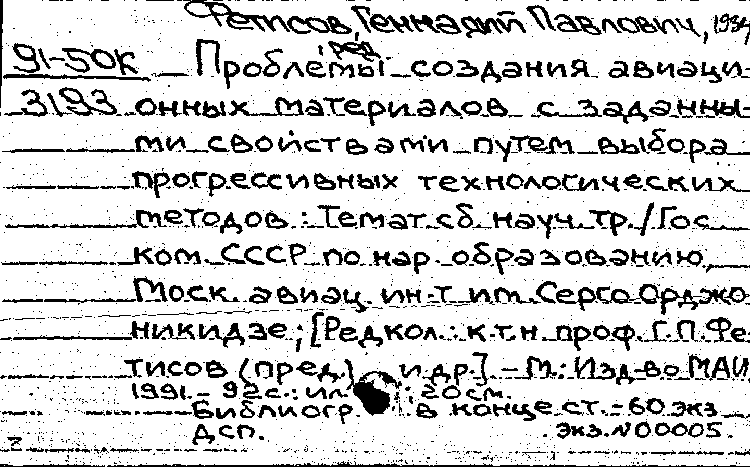 Фетисов, Геннадий Павлович, 1934
ред.
91-50к Проблемы создания авиаци-
3193 онных материалов с заданны-
ми свойствами путем выбора
прогрессивных технологических
методов : Темат. сб. науч. тр. / Гос.
ком. СССР по нар. образованию,
Моск. авиац. ин-т им. Серго Орджо-
никидзе; [Редкол.: к.т.н. проф. Г.П. Фе-
тисов (пред.) и др.]. - М.: Изд-во МАИ
1991. - 92 с.: ил.; 20 см.
Библиогр. в конце ст. - 60 экз
ДСП. Экз. №00005.